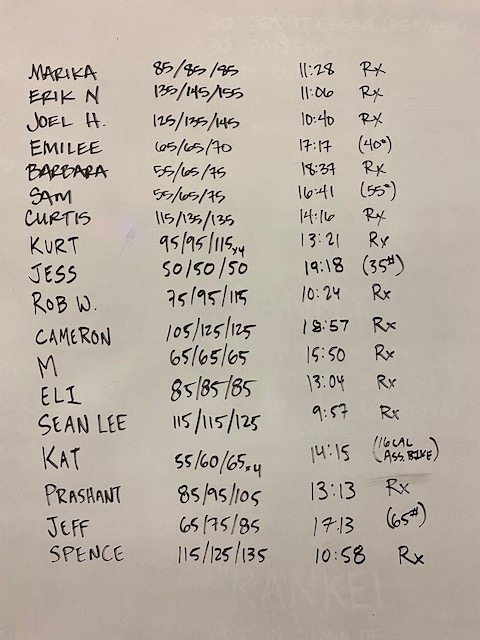 MARIKA 85/85/85 11:28 Rx
ERIK N 135/145/155 11:06 Rx
JOEL H. 125/135/145 10:40 Rx
EMILEE 65/65/70 17:17 (40#)
BARBARA 55/65/75 18:37 Rx
SAM 55/65/75 16:41 (55#)
CURTIS 115/135/135 14:16 Rx
KURT 95/95/115x4 13:21 Rx
JESS 50/50/50 19:18 (35#)
ROB W. 75/95/115 10:24 Rx
CAMERON 105/125/125 18:57 Rx
M 65/65/65 15:50 Rx
ELI 85/85/85 13:04 Rx
SEAN LEE 115/115/125 9:57 Rx
KAT 55/60/65x4 14:15 (16 CAL
ASS. BIKE)
PRASHANT 85/95/105 13:13 Rx
JEFF 65/75/85 17:13 (65#)
SPENCE 115/125/135 10:58 Rx
KANKEL